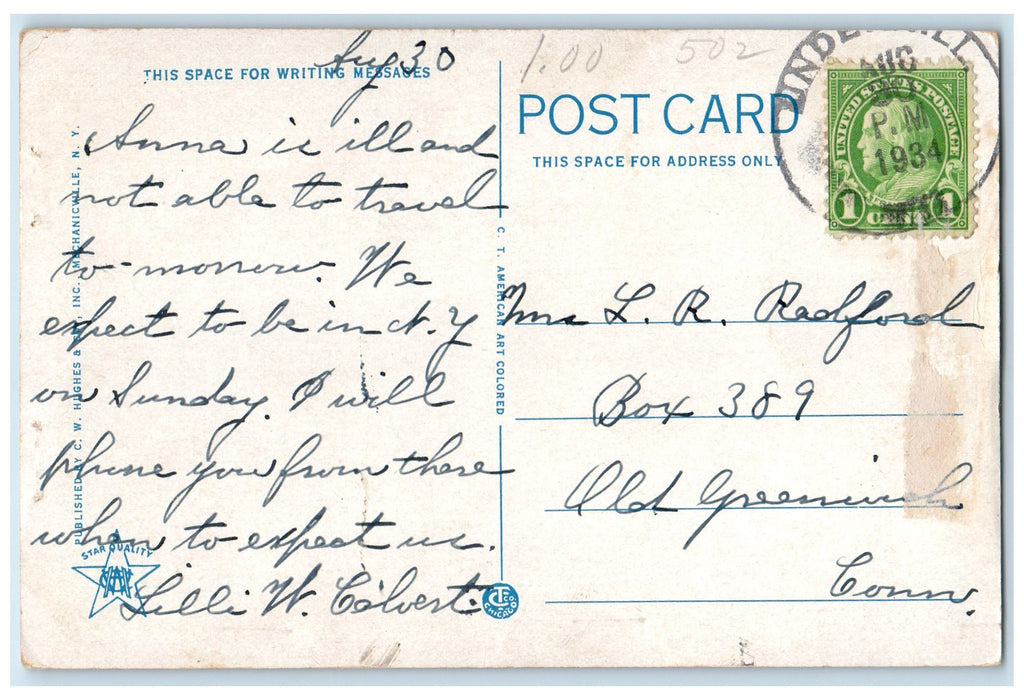 Aug 30
THIS SPACE FOR WRITING MESSAGES
Anna is ill and
not able to travel
to-morrow. We
expect to be in N. Y
on Sunday. I will
phone you from there
when to expect us.
Lilli W. Calvert.
PUBLISHED BY C. W. HUGHES & CO., INC., MECHANICVILLE, N. Y.
STAR QUALITY
C. T. AMERICAN ART COLORED
CHICAGO
1.00 502
POST CARD
THIS SPACE FOR ADDRESS ONLY
UNDERHILL
AUG
P.M.
1934
UNITED STATES POSTAGE
1 CENT 1
Mrs L. R. Radford
Box 389
Old Greenwich
Conn.